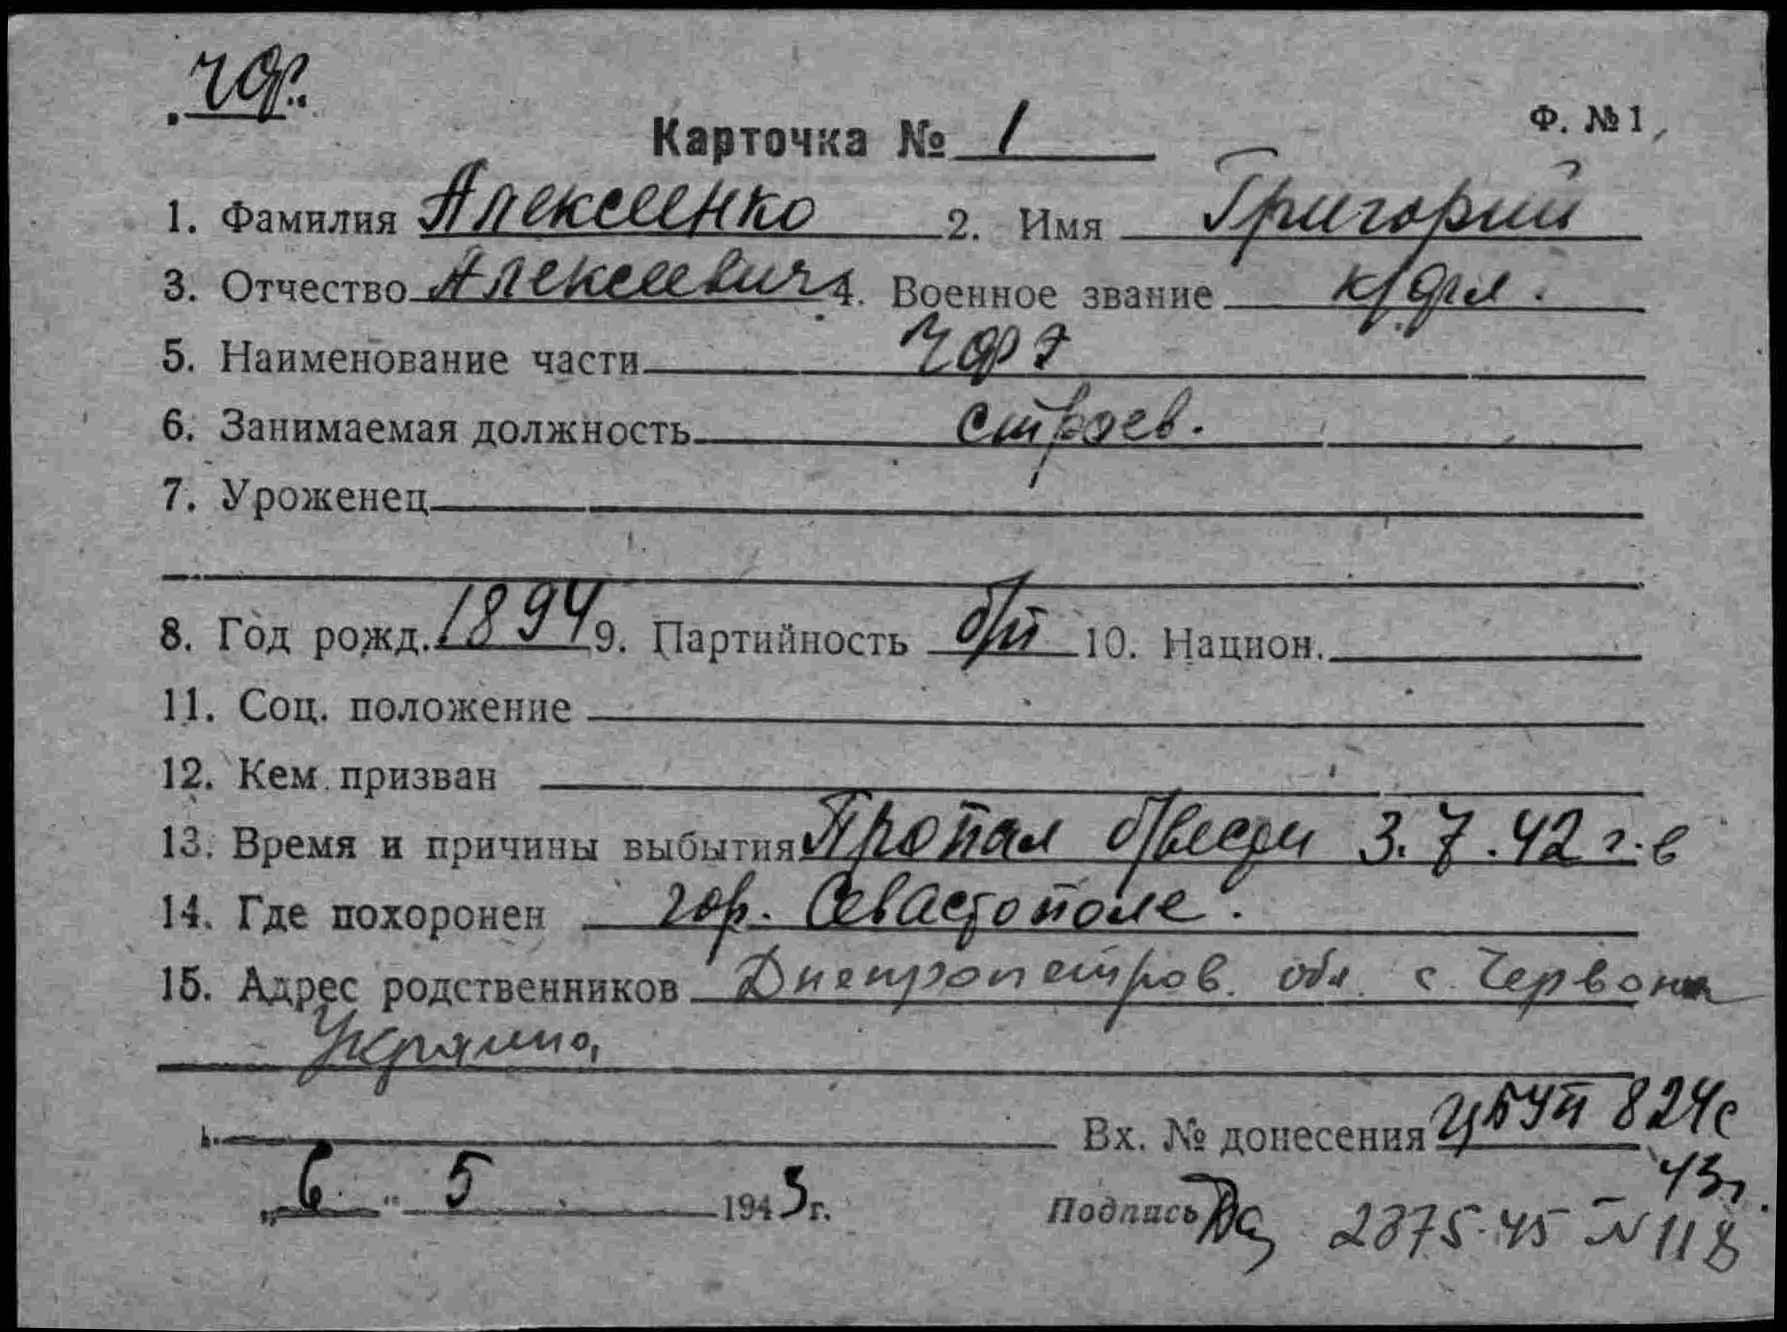 ЧФ.
Карточка № 1 Ф. № 1
1. Фамилия Алексеенко 2. Имя Григорий
3. Отчество Алексеевич 4. Военное звание к/фл.
5. Наименование части ЧФ
6. Занимаемая должность строев.
7. Уроженец
8. Год рожд. 1894 9. Партийность б/п 10. Национ.
11. Соц. положение
12. Кем призван
13. Время и причины выбытия Пропал б/вести 3.7.42 г. в
14. Где похоронен гор. Севастополе.
15. Адрес родственников Днепропетров. обл. с. Червона
Украина
Вх. № донесения ЦБУП 824с
43г.
„6" 5 1943г. Подпись 2875-45 N 118